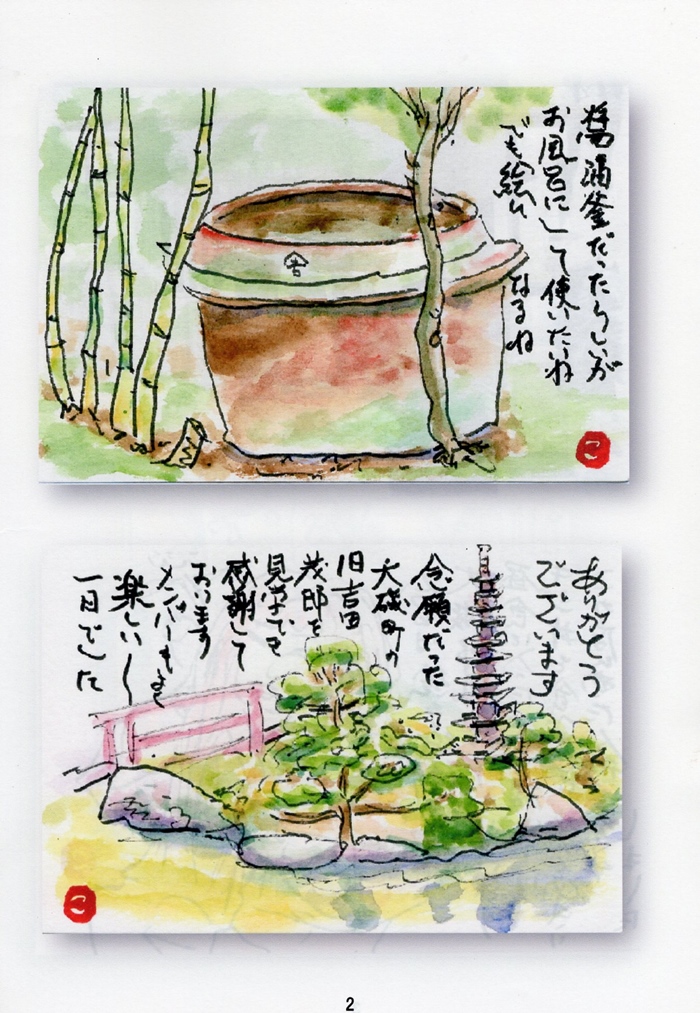 醤油釜だったらしいが
お風呂にして使いたいね
でも絵に
なるね
吉
こ
ありがとう
ございます
念願だった
大磯町の
旧吉田
茂邸を
見学でき
感謝して
おります
メンバーもよく
楽しい
一日でした
こ
2